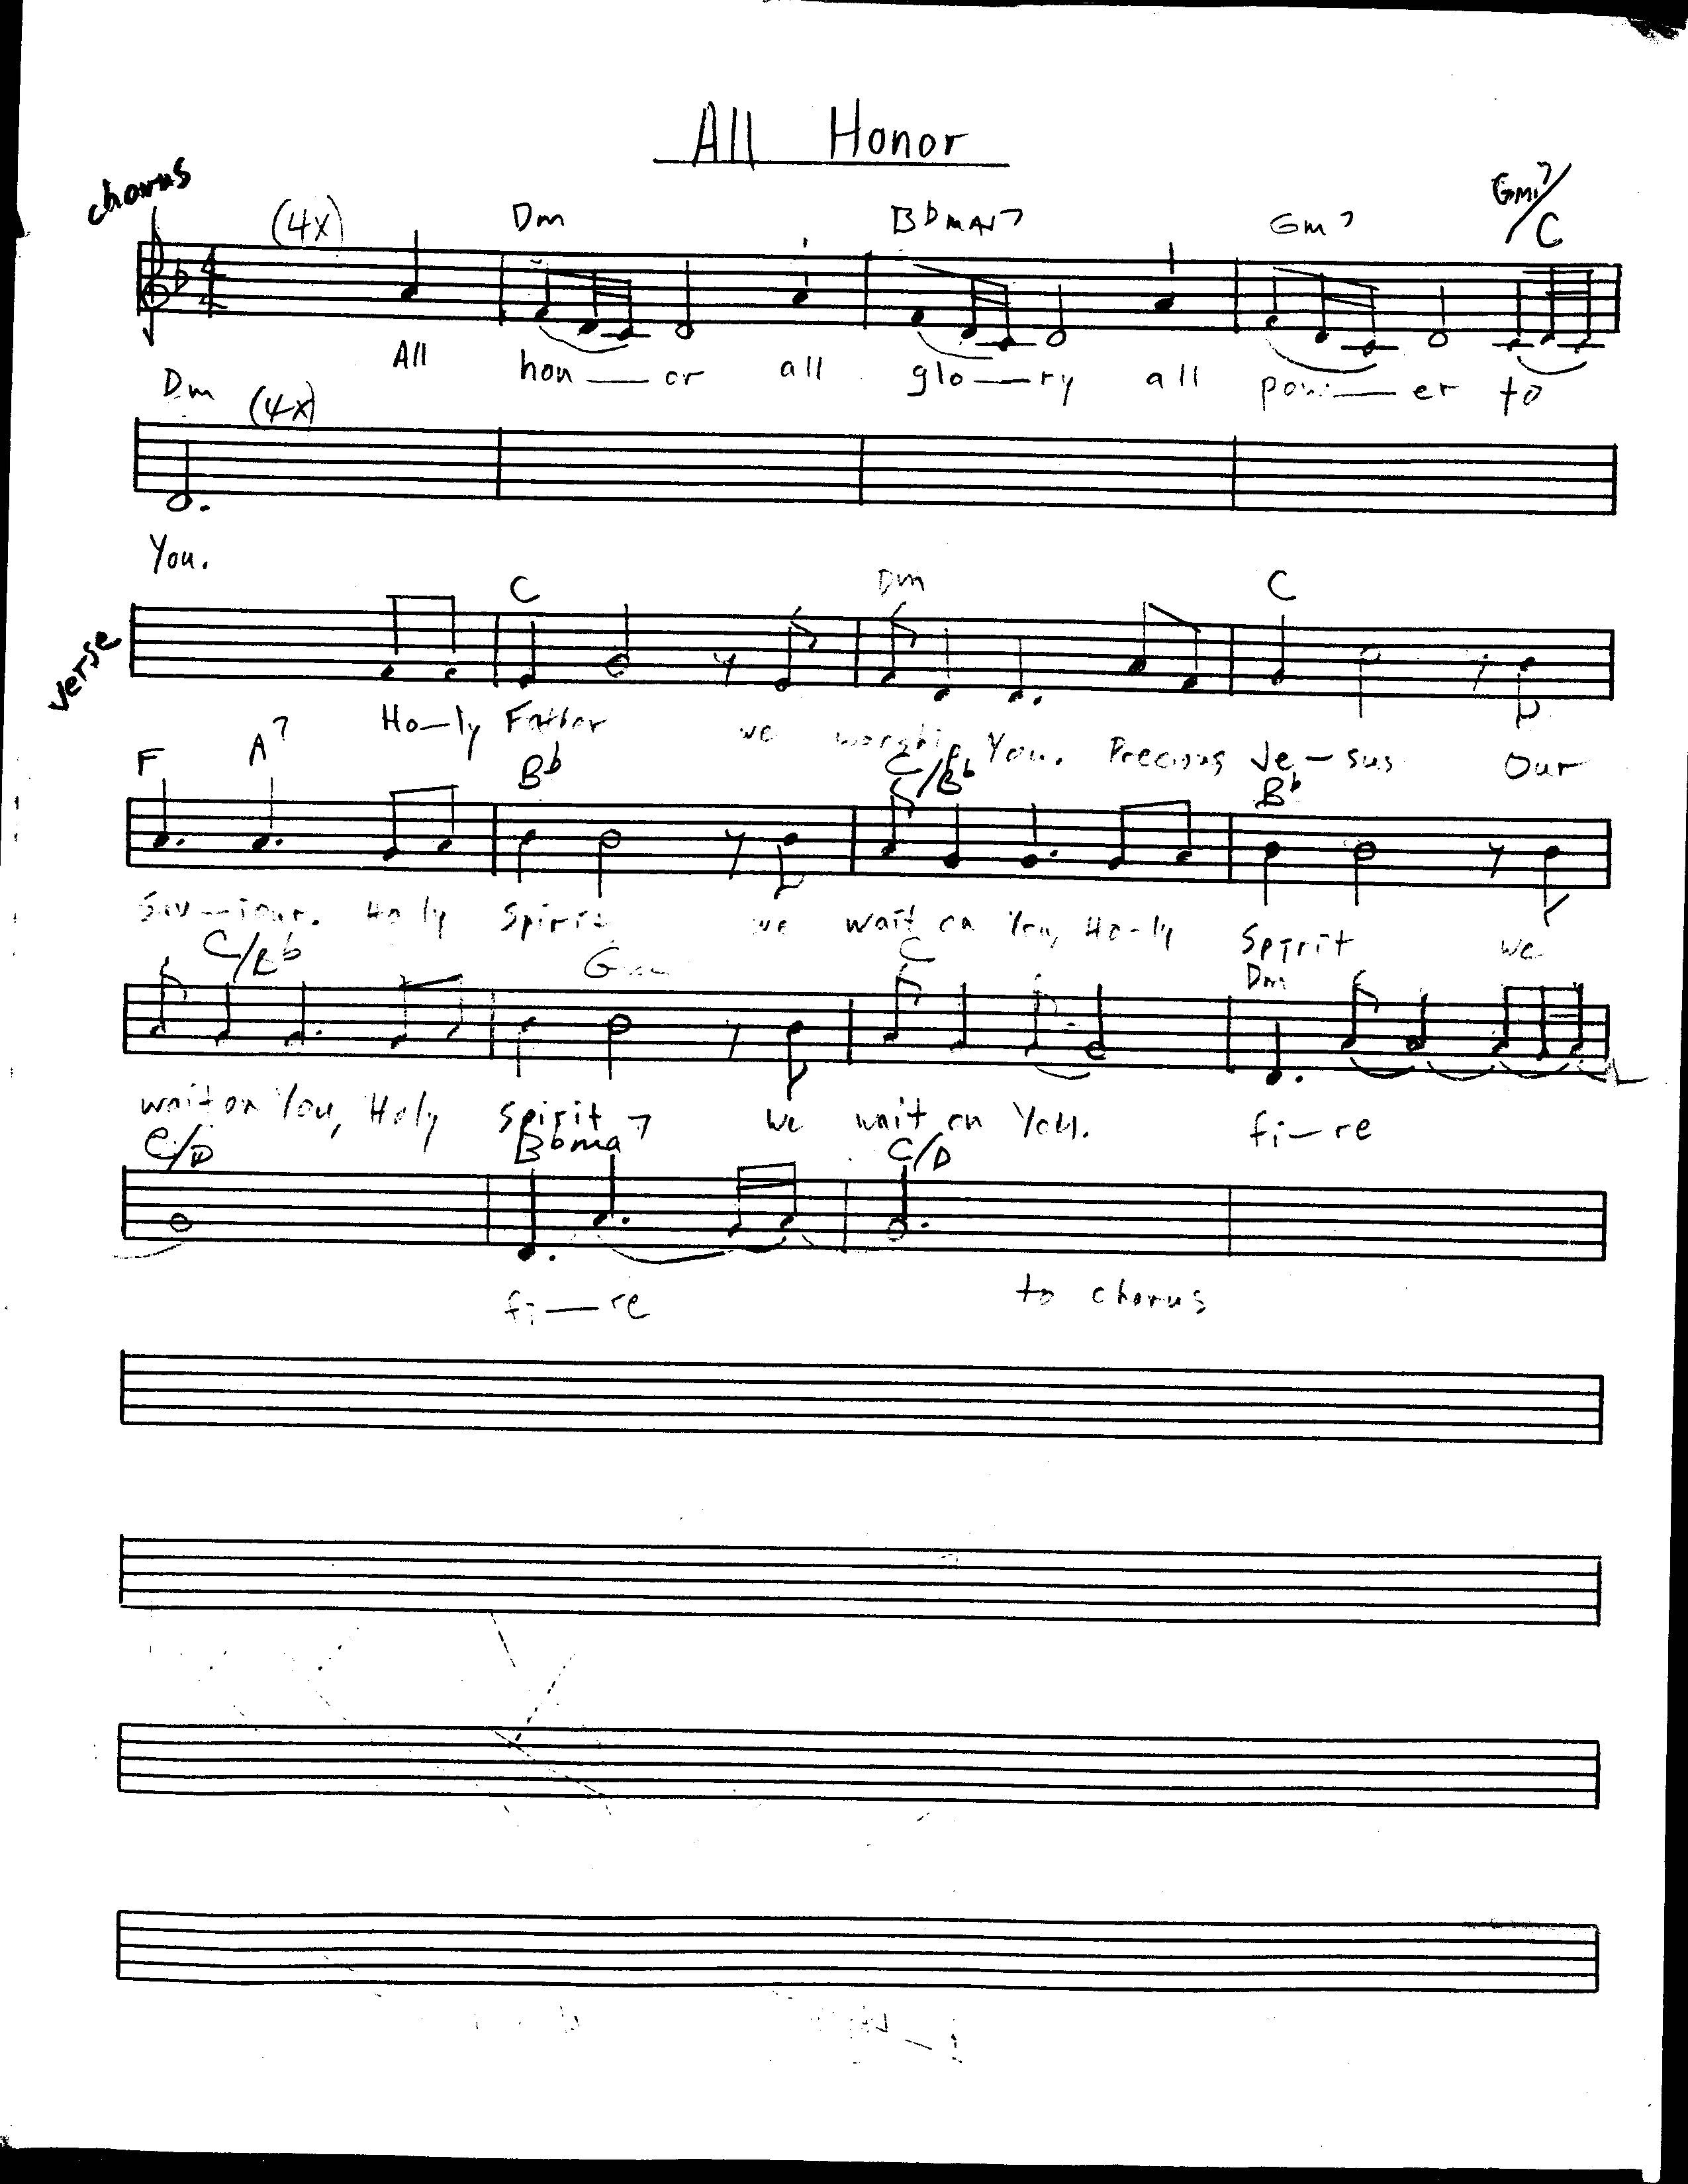 All Honor
chorus
(4x) Dm Bbmaj7 Gm7 Gmi7/C
4
4
All hon—or all glo—ry all pow—er to
Dm (4x)
You.
verse
C Dm C
Ho—ly Father we worship You. Precious Je—sus Our
F A7 Bb C/Bb Bb
Sav—iour. Holy Spirit we wait on You, Ho—ly Spirit we
C/Bb C Dm
wait on You, Holy Spirit we wait on You. fi—re
C/D Bbma7 C/D
fi—re to chorus